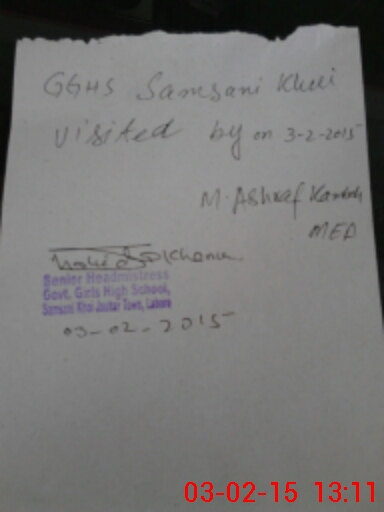 GGHS Samsani Khui
visited by on 3-2-2015
M. Ashraf
MEA
Khanum
Senior Headmistress
Govt. Girls High School,
Samsani Khoi Johar Town, Lahore
03-02-2015
03-02-15 13:11